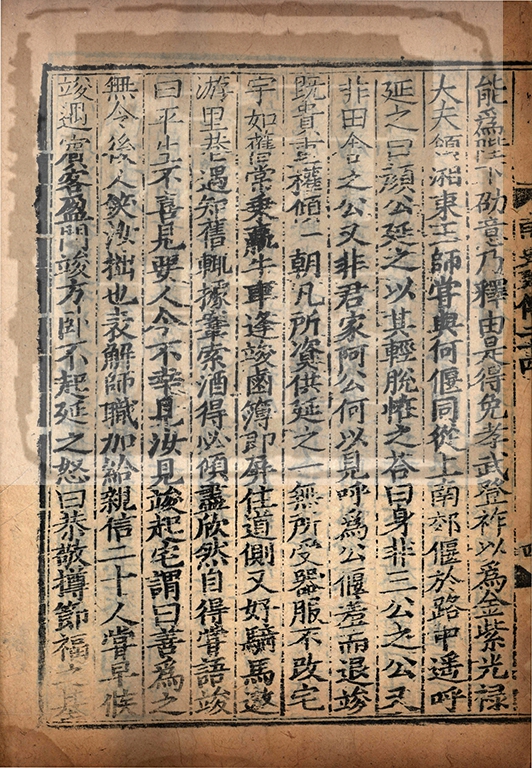 能爲陛下劭意乃釋由是得免孝武登祚以爲金紫光祿
大夫領湘東王師嘗與何偃同從上南郊偃於路中遥呼
延之曰顔公延之以其輕脫怪之荅曰身非三公之公又
非田舎之公又非君家阿公何以見呼爲公偃羞而退竣
既貴重權傾一朝凡所資供延之一無所受器服不改宅
宇如舊常乗羸牛車逢竣鹵簿即屏住道側又好騎馬遨
游里巷遇知舊輒據鞌索酒得必傾盡欣然自得嘗語竣
曰平生不喜見要人今不幸見汝見竣起宅謂曰善爲之
無令後人笑汝拙也表解師職加給親信二十人嘗早候
竣遇賔客盈門竣方卧不起延之怒曰恭敬撙節福之基